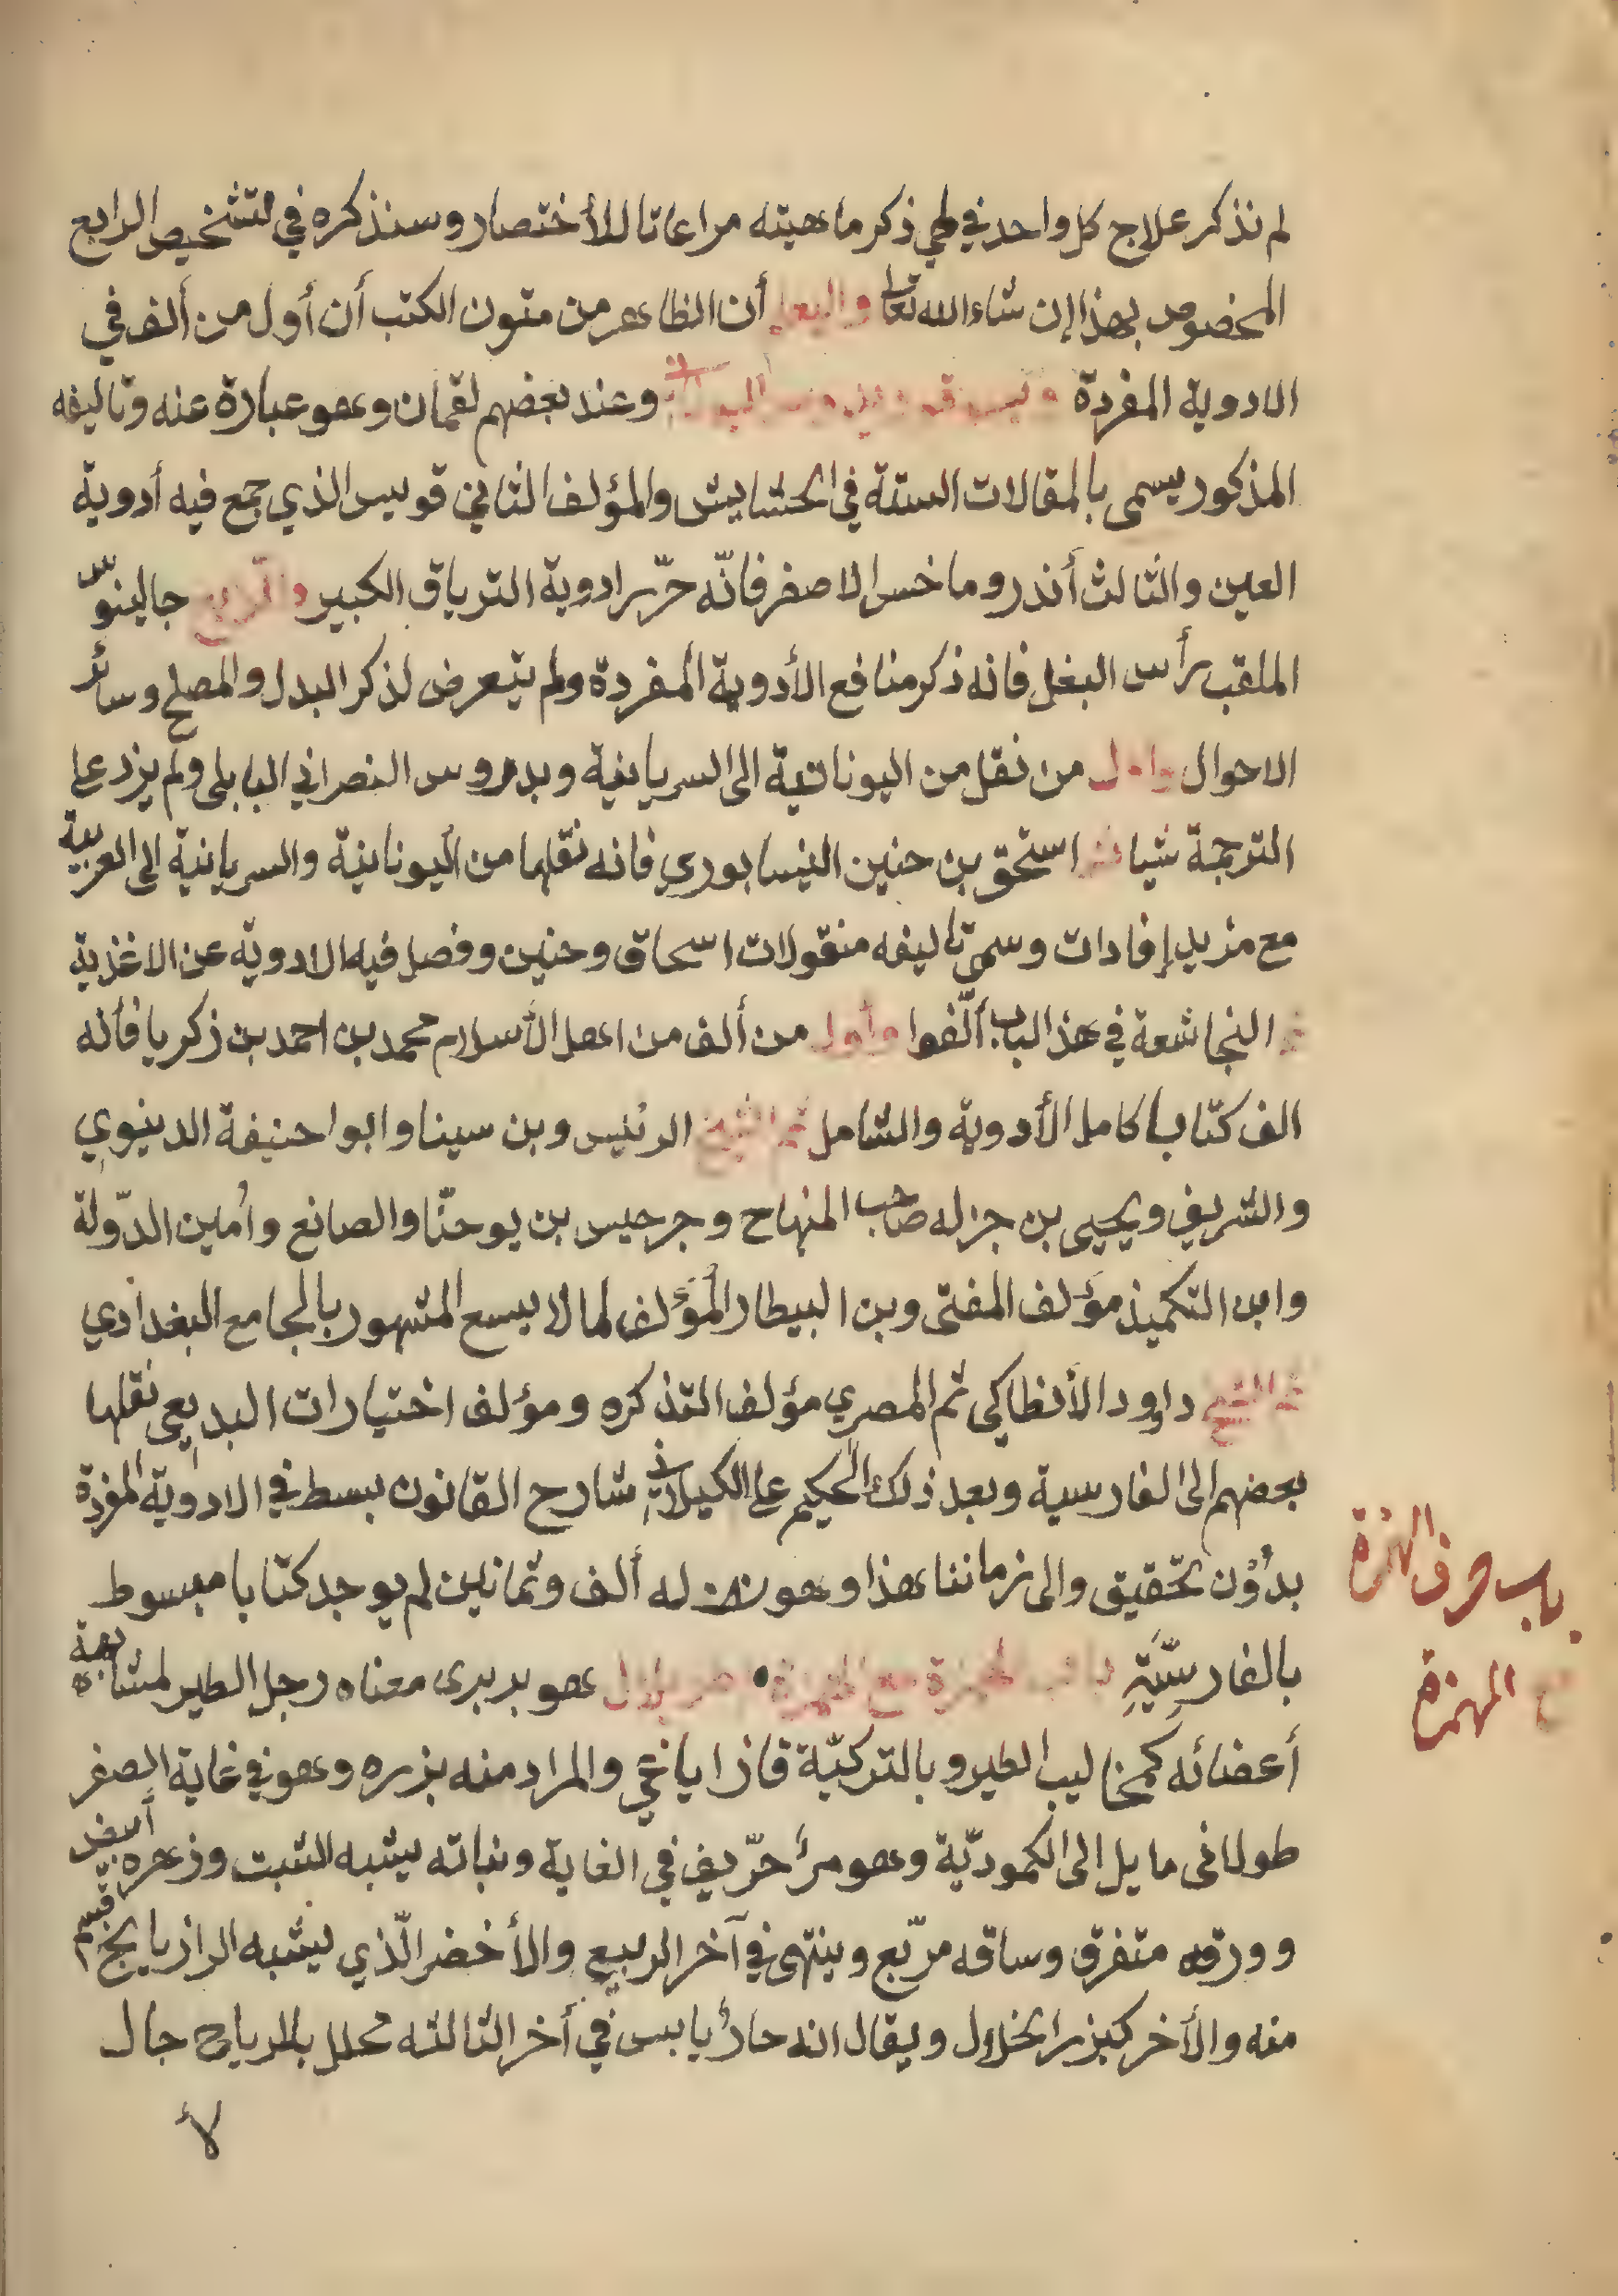 لم نذكر علاج كل واحد في طي ذكر ماهيته مراعاتا للأختصار وسنذكره في لتشخيص الرابع
المخصوص بهذا إن شاء الله تعالى وليعلم أن الظاهر من متون الكتب أن أول من ألف في
الادوية المفردة وعند بعضهم لقمان وهو عبارة عنه وتاليفه
المذكور يسمى بالمقالات الستة في الحشايش والمؤلف الثاني قويس الذي جمع فيه أدوية
العين والثالث أندروماخس الاصغر فانّه حرّر ادوية الترياق الكبير والرابع جالينوس
الملقب برأس البغل فانه ذكر منافع الأدوية المفردة ولم يتعرض لذكر البدل والمصلح وسائر
الاحوال واول من نقل من اليونانية الى السريانية وبدروس النصراني البابلى ولم يزد على
الترجمة شيا ثم اسحق بن حنين النيسابوري فانه نقلها من اليونانية والسريانية الى العربية
مع مزيد إفادات وسمى تاليفه منقولات اسحاق وحنين وفصل فيه الادوية عن الاغذية
ثم النجاشعة في هذ الباب ألّفوا وأول من ألف من اهل الأسلام محمد بن احمد بن زكريا فأنه
الف كتّابا كامل الأدوية والشامل ثم الشيخ الرئيس وبن سينا وابوا حنيفة الدينوي
والشريف ويحيى بن جزله صاحب المنهاح وجرجيس بن يوحنّا والصانع وأمين الدّولة
وابن التكميذ مؤلف المفتى وبن البيطار المؤلف لما لا يسع المشهور بالجامع البغدادي
ثم الشيخ داود الأنطاكى ثم المصري مؤلف التذكره ومؤلف اختيارات البديعى نقلها
بعضهم الى الفارسية وبعد ذلك الحكيم على الكيلاني شارح القانون بسط في الادوية المفردة
بدؤن تحقيق والى زماننا هذا وهو سنه ألف وثمانين لم يوجد كتابا مبسوط
بالفارسيّة باب الهمزة مع الهمزة هو بربرى معناه رجل الطير لمشابهة
أعضائه كمخاليب الطير وبالتركيّة قازاياغي والمراد منه بزره وهو في غاية الصغر
طولانى مايل الى الكموديّة وهو مرّ حرّيف في الغاية ونباته يشبه الشبت وزهره أبيض
وورقه متفرق وساقه مربّع وينتهى في آخر الربيع والأخضر الّذي يشبه الرازيانج قسم
منه والأخر كبزر الخلال ويقال انه حارّ يابس في أخر الثالثه محلل بالرياح جال
لأ
باب حرف الهمزة
مع الهمزة